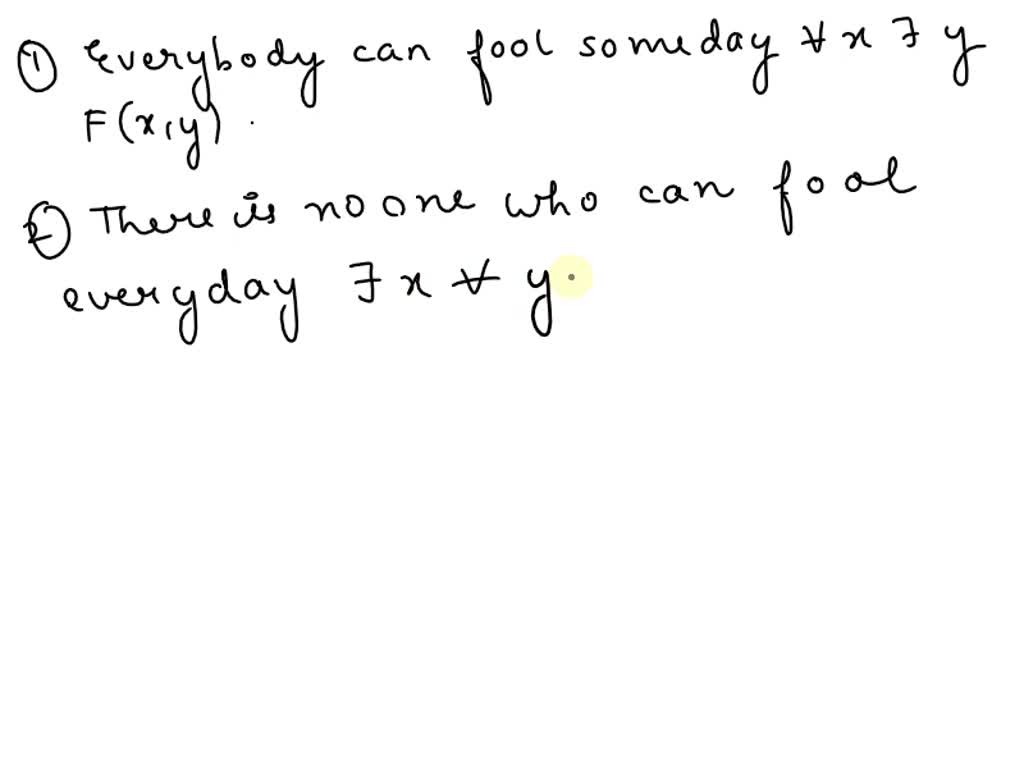 ① Everybody can fool someday ∀ x ∃ y
F(x,y) .
② There is no one who can fool
everyday ∃ x ∀ y